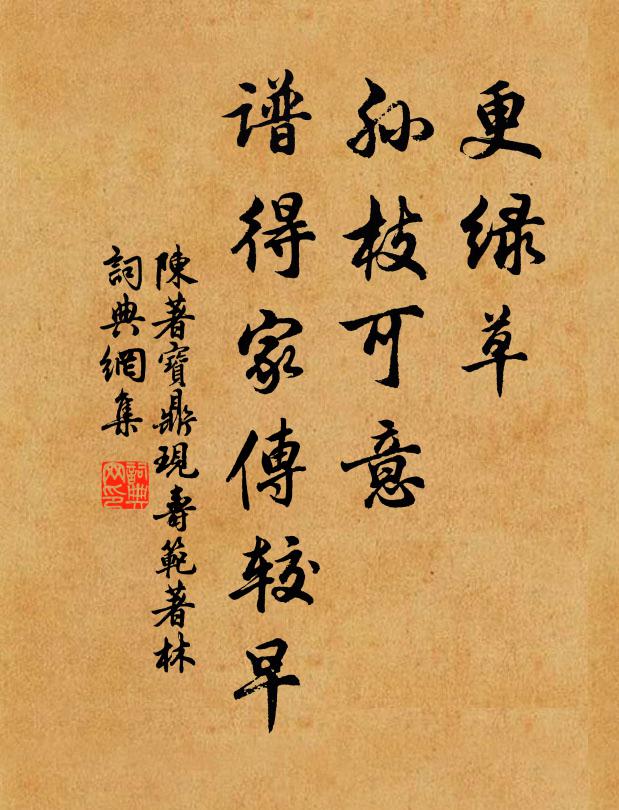 更绿草
孙枝可意
谱得家傳较早
陳著寶鼎現壽範著林
詞典網集
詞典网印